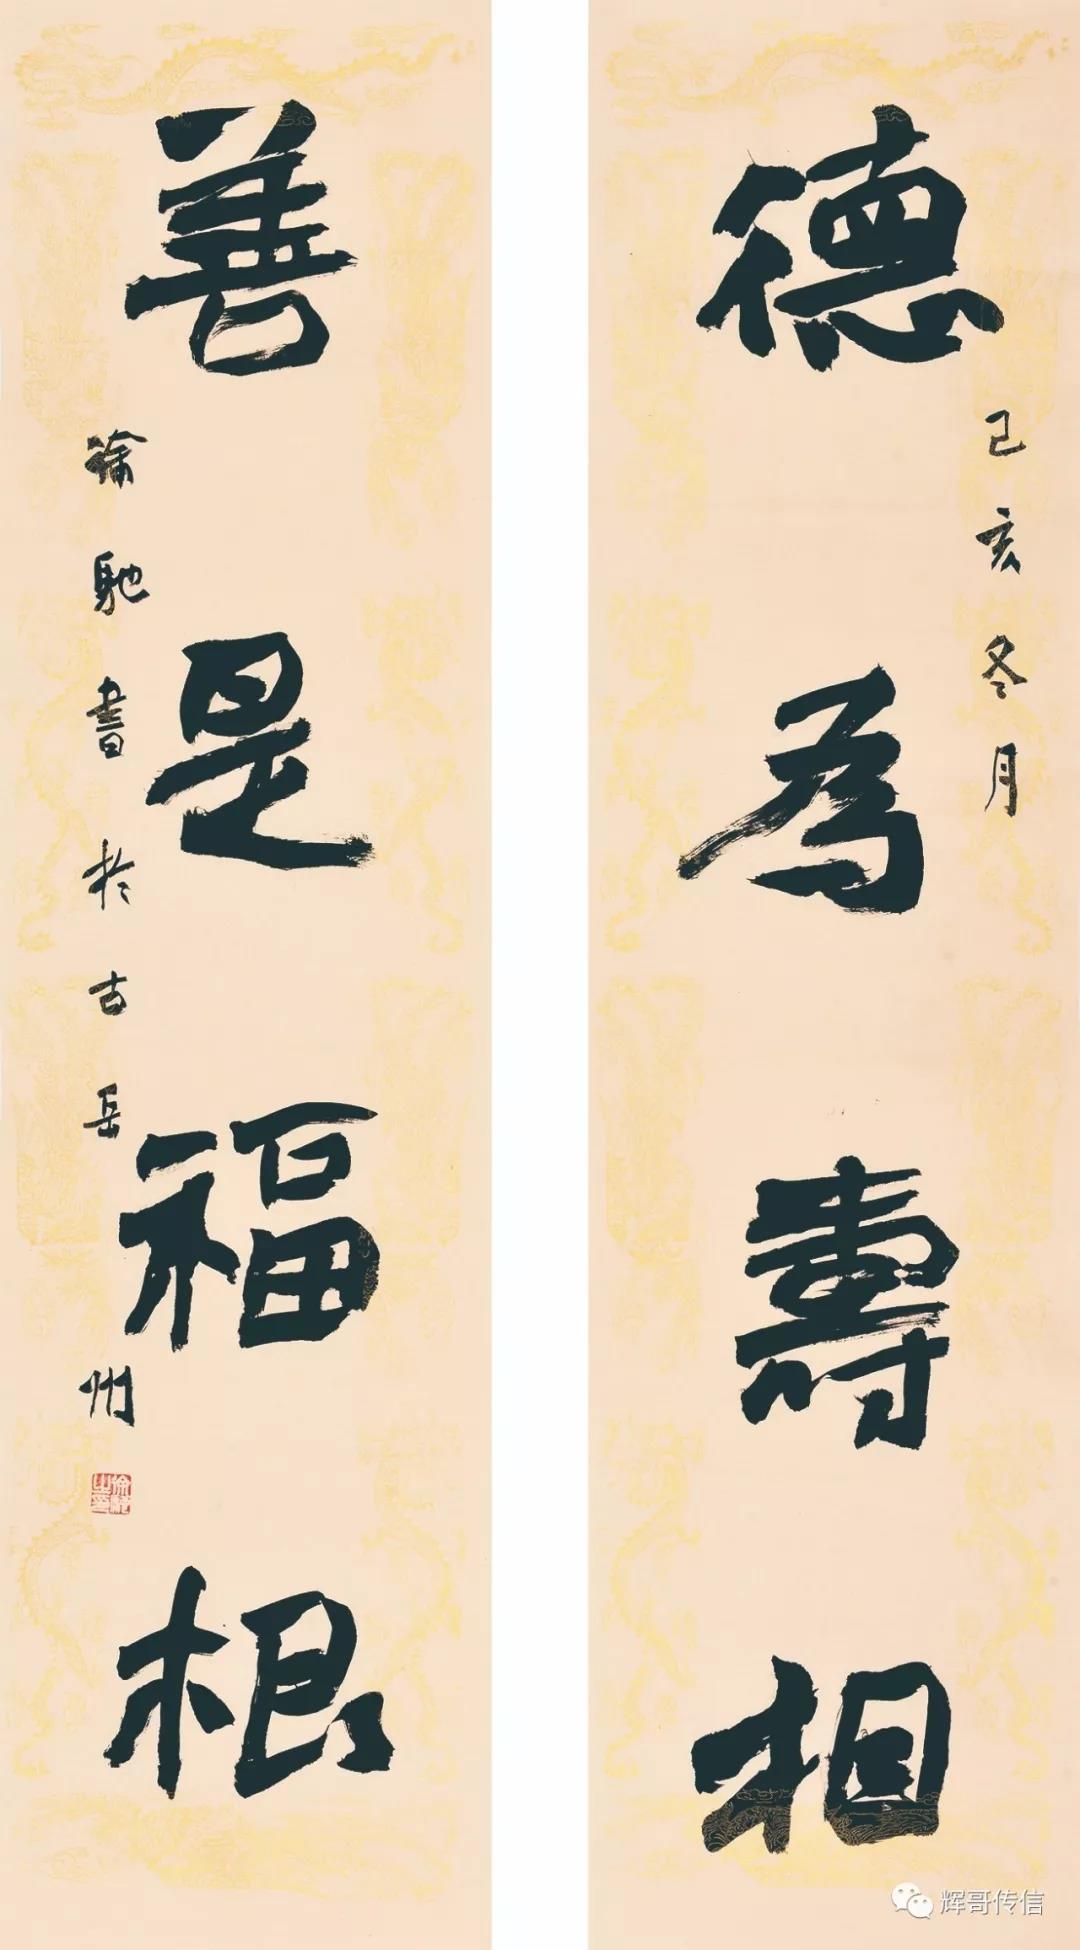 德為壽相
己亥冬月
善是福根
徐馳書於古岳州
徐馳之印
辉哥传信